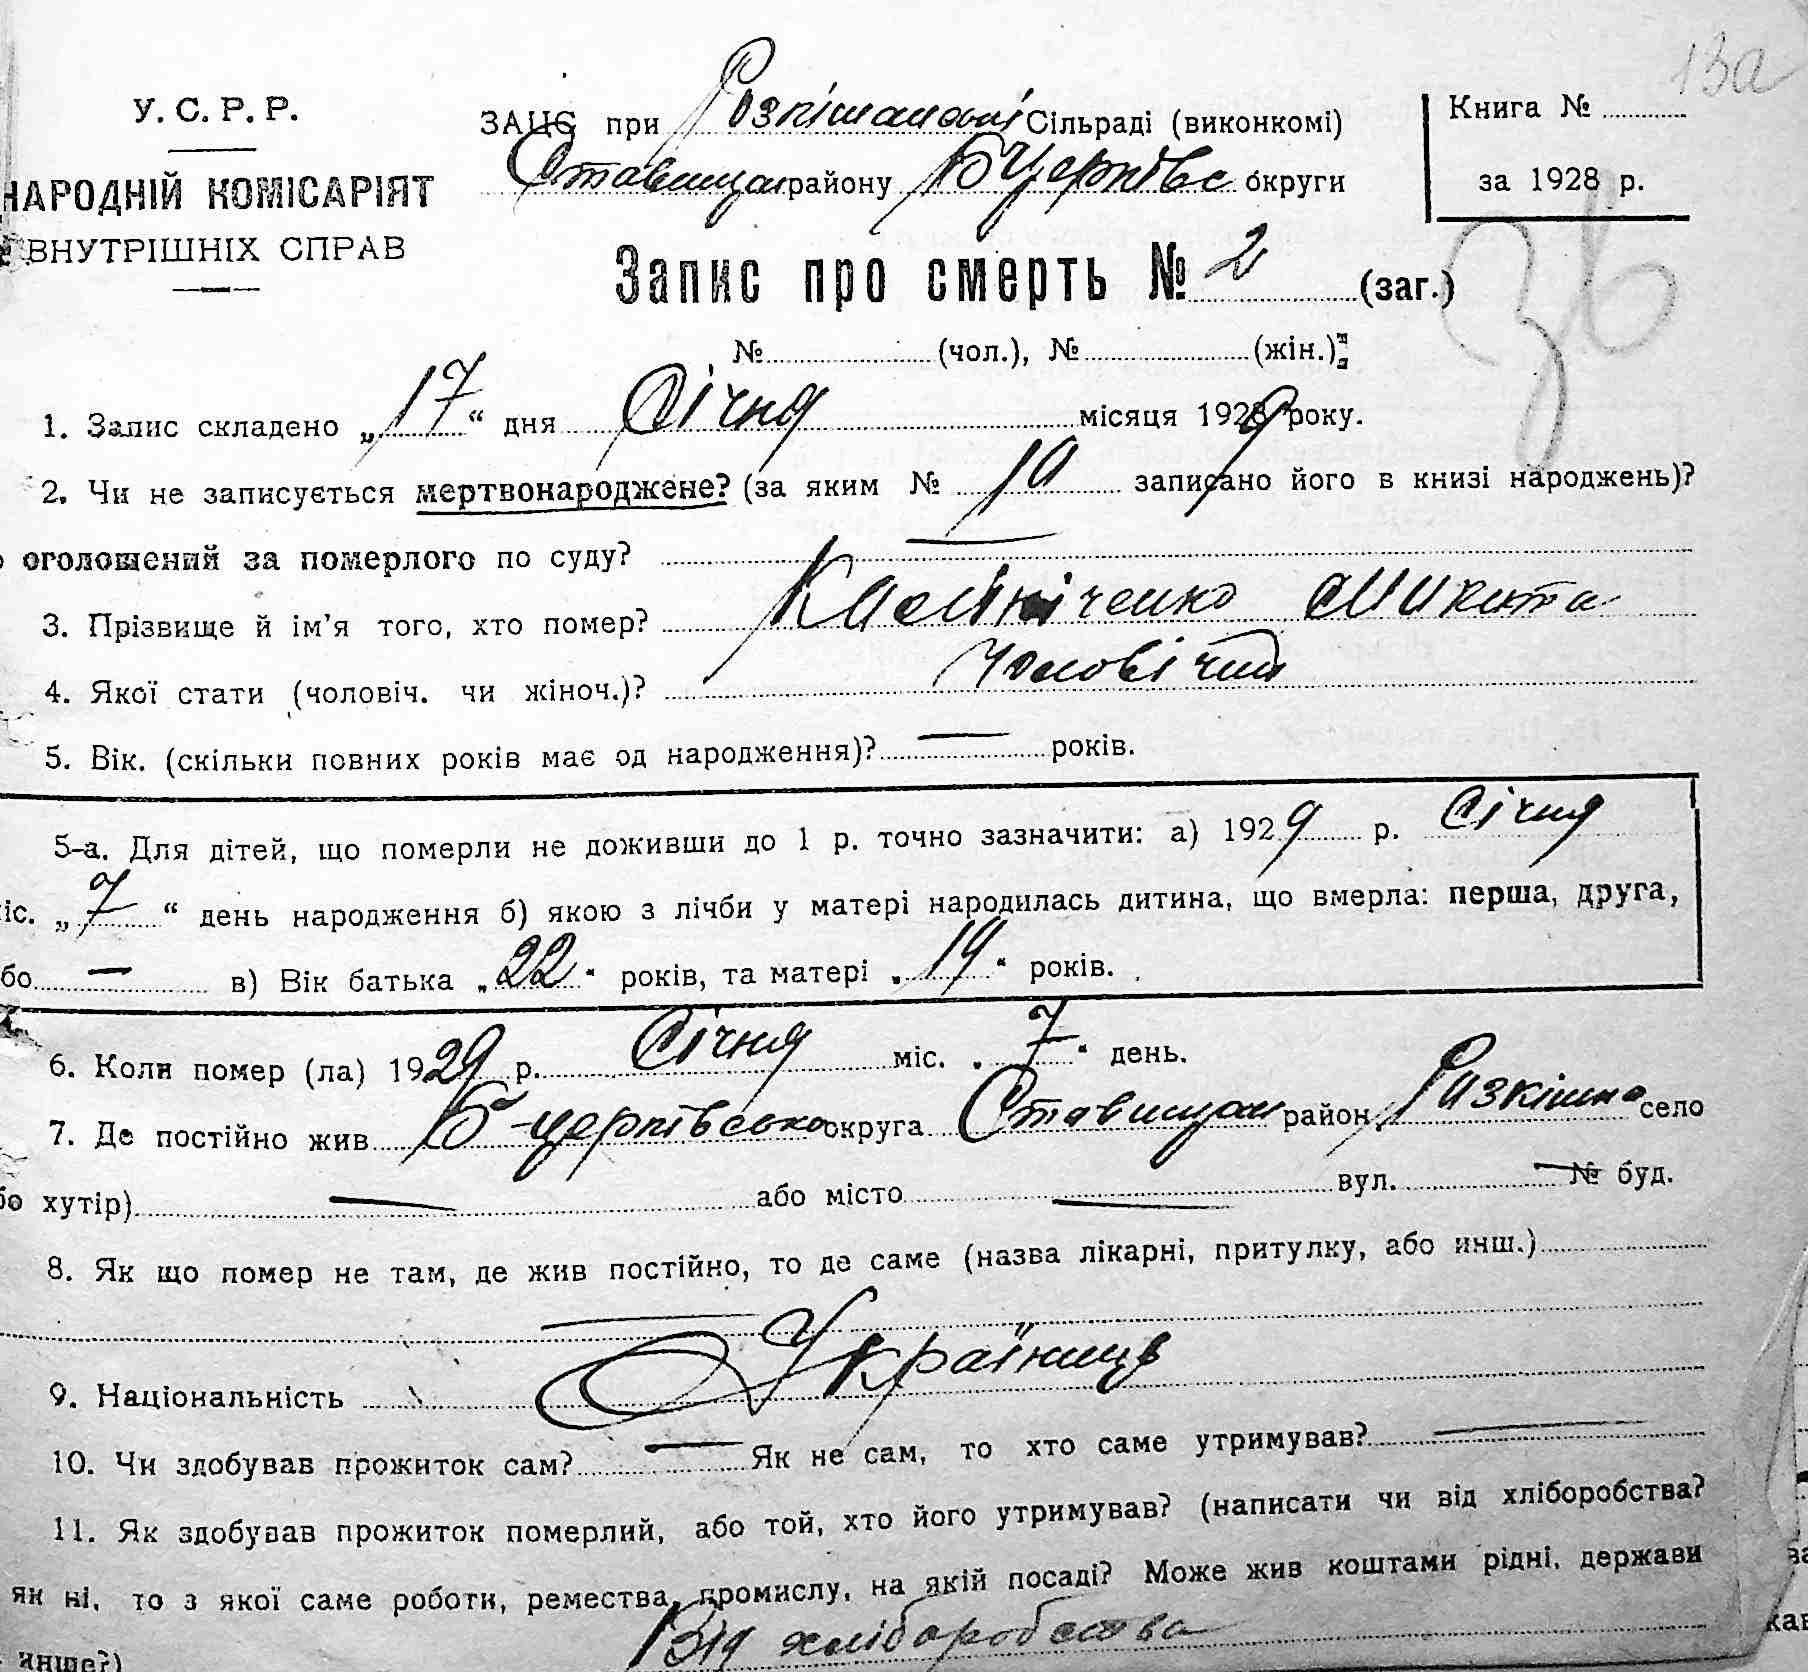 13а
У. С. Р. Р.
НАРОДНІЙ КОМІСАРІЯТ
ВНУТРІШНІХ СПРАВ
ЗАЦС при Розкішнянські Сільраді (виконкомі)
Ставищан району Б Церківс округи
Книга №
за 1928 р.
36
Запис про смерть № 2 (заг.)
№ (чол.), № (жін.)
1. Запис складено „17“ дня Січня місяця 1929 року.
2. Чи не записується мертвонароджене? (за яким № 10 записано його в книзі народжень)?
оголошений за померлого по суду? —
3. Прізвище й ім'я того, хто помер? Калініченко Микита
4. Якої стати (чоловіч. чи жіноч.)? Чоловічий
5. Вік. (скільки повних років має од народження)? — років.
5-а. Для дітей, що померли не доживши до 1 р. точно зазначити: а) 1929 р. Січня
іс. „7“ день народження б) якою з лічби у матері народилась дитина, що вмерла: перша, друга,
бо — в) Вік батька „22“ років, та матері „19“ років.
6. Коли помер (ла) 1929 р. Січня міс. „7“ день.
7. Де постійно жив Б-церківсько округа Ставищан район, Розкішна село
бо хутір) — або місто — вул. — № буд.
8. Як що помер не там, де жив постійно, то де саме (назва лікарні, притулку, або инш.)
—
9. Національність Українць
10. Чи здобував прожиток сам? — Як не сам, то хто саме утримував? —
11. Як здобував прожиток померлий, або той, хто його утримував? (написати чи від хліборобства?
як ні, то з якої саме роботи, ремества, промислу, на якій посаді? Може жив коштами рідні, держави
инше?) Від хліборобства